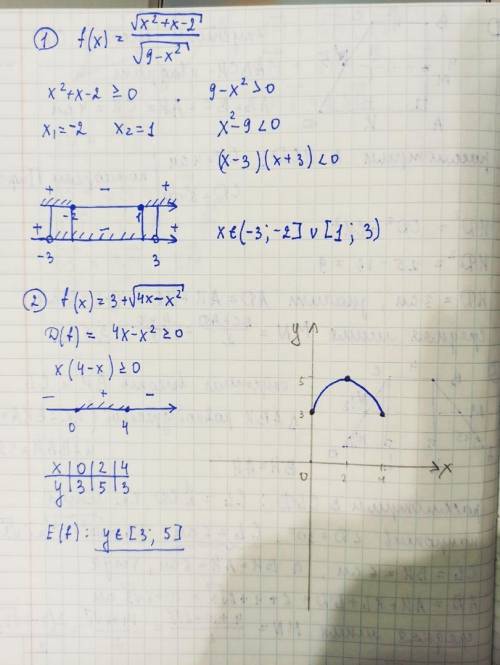 1 f(x) = √(x²+x-2) / √(9-x²)
x²+x-2 ≥ 0 . 9-x² > 0
x₁=-2 x₂=1 x²-9 < 0
(x-3)(x+3) < 0
+ - +
-2 1
+ - +
-3 3
x ∈ (-3; -2] ∪ [1; 3)
2 f(x) = 3+√(4x-x²)
D(f) = 4x-x² ≥ 0
x(4-x) ≥ 0
- + -
0 4
x | 0 | 2 | 4
y | 3 | 5 | 3
E(f): y ∈ [3; 5]
y
5
3
0 2 4 x